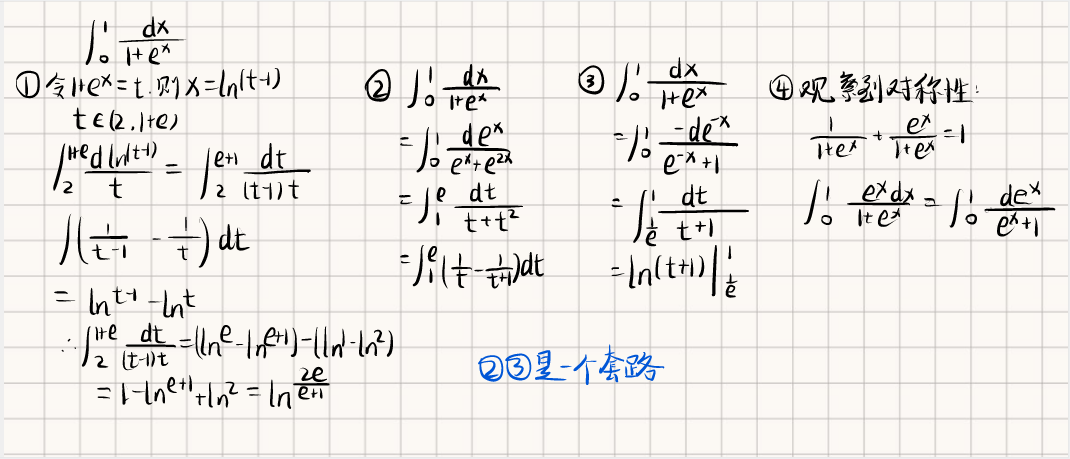 ∫₀¹ dx/(1+eˣ)
① 令1+eˣ=t.则x=ln(t-1)
t∈(2,1+e)
∫₂^(1+e) d ln(t-1)/t = ∫₂^(e+1) dt/((t-1)t)
∫(1/(t-1) - 1/t) dt
= ln^(t-1) - ln^t
∴∫₂^(1+e) dt/((t-1)t) = (ln^e - ln^(e+1)) - (ln^1 - ln^2)
= 1-ln^(e+1)+ln^2 = ln^(2e/(e+1))
② ∫₀¹ dx/(1+eˣ)
= ∫₀¹ deˣ/(eˣ+e^(2x))
= ∫₁^e dt/(t+t²)
= ∫₁^e (1/t - 1/(t+1))dt
③ ∫₀¹ dx/(1+eˣ)
= ∫₀¹ -de^(-x)/(e^(-x)+1)
= ∫_(1/e)^1 dt/(t+1)
= ln(t+1)|_(1/e)^1
④ 观察到对称性:
1/(1+eˣ) + eˣ/(1+eˣ) = 1
∫₀¹ eˣdx/(1+eˣ) = ∫₀¹ deˣ/(eˣ+1)
②③是一个套路